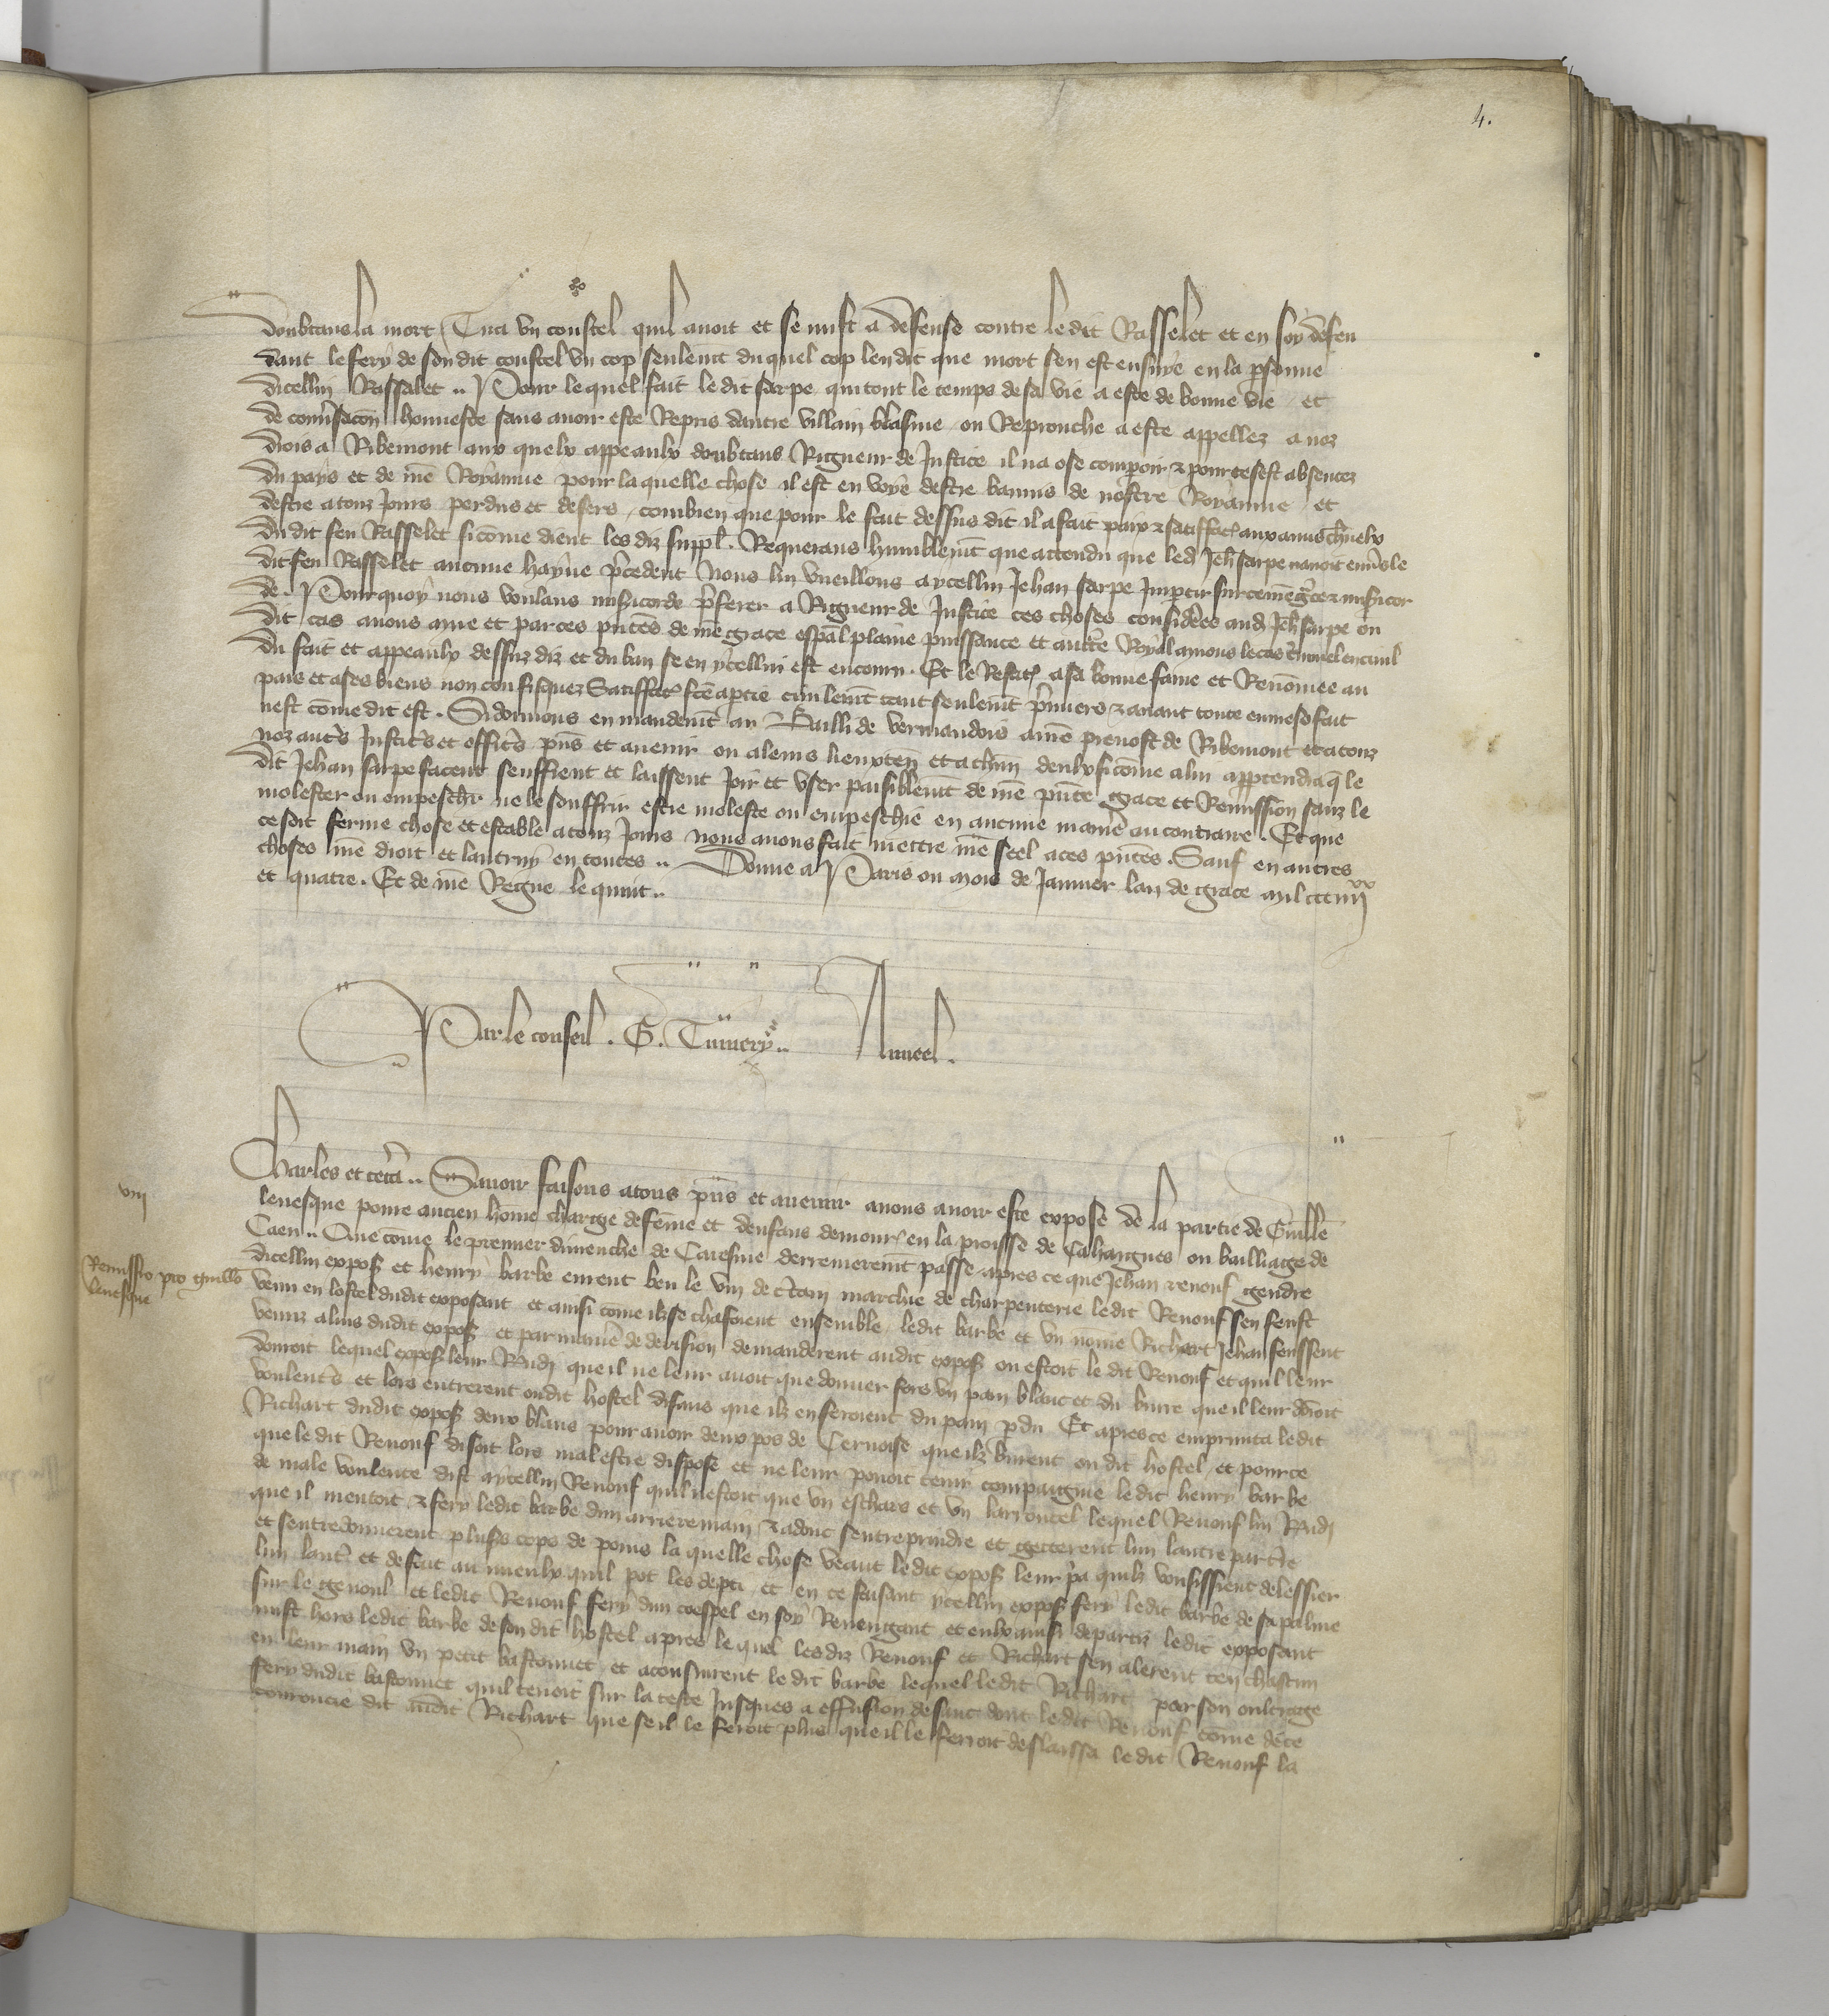 4.
doubtans la mort Tira un coustel quil avoit et se mist a defense contre le dit Rasselet et en soy defen
dant le fery de son dit coustel un cop seulemt du quel cop len dit que mort sen est ensuye en la psonne
dicellui Rasselet .. Pour le quel fait le dit sarpe qui tout le temps de sa vie a este de bonne vie et
de convsacon honneste sans avoir este Repris dautre villain blasme ou Reprouche a este appellez a noz
drois a Ribemont aux quelx appeaulx doubtans Rigueur de Justice il na ose comparoir & pour ce sest absentez
du pays et de nre Royaume pour la quelle chose il est en voye destre bannis de nostre Royaume et
destre a touz Jours perdus et desers , combien que pour le fait dessus dit il a fait paix & satisfacc aux amis charnelx
du dit feu Rasselet si come dient les diz suppl . Requerans humblemt que attendu que led Jeh sarpe navoit envs le
dit feu Rasselet aucune hayne pcedent Nous lui vueillons a ycellui Jehan sarpe Impartir sur ce nre grce & misicor
de . Pour quoy nous voulans misicorde pferer a Rigueur de Justice ces choses considerees aud Jeh sarpe ou
dit cas avons et par ces pntes de nre grace espal plaine puissance et auctte Royal avons le cas cminel en civil
du fait et appeaulx dessuz diz et du ban se en ycellui est encouru . Et le Restat a sa bonne fame et Renommee au
pais et a ses biens non confisquez Satisffac fce a ptie civilemt tant seulemt pmiers & avant toute euvre se fait
nest come dit est . Si donnons en mandemt au Bailli de vermandois a nre prevost de Ribemont et a touz
noz auts Justics et offics pns et avenir ou a leurs lieuxten et a chun deulx si come a lui apptendra q le
dit Jehan sarpe facent seuffrent et laissent Joir et user paisiblemt de nre pnte grace et Remission sanz le
molester ou empescher ne le souffrir estre moleste ou empeschie en aucune manre au contraire . Et que
ce soit ferme chose et estable a touz Jours nous avons fait mettre nre seel a ces pntes . Sauf en autres
choses nre droit et lautruy en toutes .. Donne a Paris ou mois de Janvier lan de grace mil ccc iiijxx
et quatre . Et de nre Regne le quint ..
Par le conseil . G. Tuuery .. Auneel .
viij
Remissio pro guillo levesque
Charles et cetera .. Savoir faisons a tous pns et avenir avons avoir este expose de la partie de Guille
levesque povre ancien home charge de feme et denfans demour en la proisse de Cahaignes ou bailliage de
Caen .. Que come le premier dimenche de Caresme derreneremt passe apres ce que Jehan renouf gendre
dicellui expos et henry barbe eurent beu le vin de ctain marchie de charpenterie le dit Renouf sen feust
venu en lostel dudit exposant et ainsi come ilz se chafoient ensemble , ledit barbe et un nome Richart Jehan feussent
venuz a luis dudit expos et par maniere de derision demanderent audit expos ou estoit le dit Renouf et quil leur
donroit lequel expos leur Rndi que il ne leur avoit que donner fors un pain blanc et du burre que il leur donroit
voulents et lors entrerent oudit hostel disans que ilz en feroient du pain pdu Et apres ce emprunta ledit
Richart dudit expos deux blans pour avoir deux pos de Cervoise que ilz burent ou dit hostel et pour ce
que le dit Renouf disoit lors mal estre dispose et ne leur povoit tenir compaignie le dit henry barbe
de male voulente dist a ycellui Renouf quil nestoit que un eschars et un larroncel lequel Renouf lui Rndi
que il mentoit & fery ledit barbe dun arrieremain & adonc sentreprindre et getterent lun lautre par tre
et sentredonnerent pluss cops de poins la quelle chose veant ledit expos leur pa quilz voulsissient delessier
lun laut et de fait au mieulx quil pot les depti et en ce faisant ycellui expos fery ledit barbe de sa palme
sur le genoul et ledit Renouf fery dun coespel en soy Revengant et eulx ainsi departiz ledit exposant
mist hors ledit barbe de son dit hostel apres le quel les diz Renouf et Richart sen alerent ten chascun
en leur main un petit bastonnet et aconsuirent le dit barbe lequel le dit Richart par son oultrage
fery dudit bastonnet quil tenoit sur la teste Jusques a effusion de sanc dont le dit Renouf come de ce
couroucie dit audit Richart que se il le feroit plus que il le ferroit des laissa le dit Renouf la